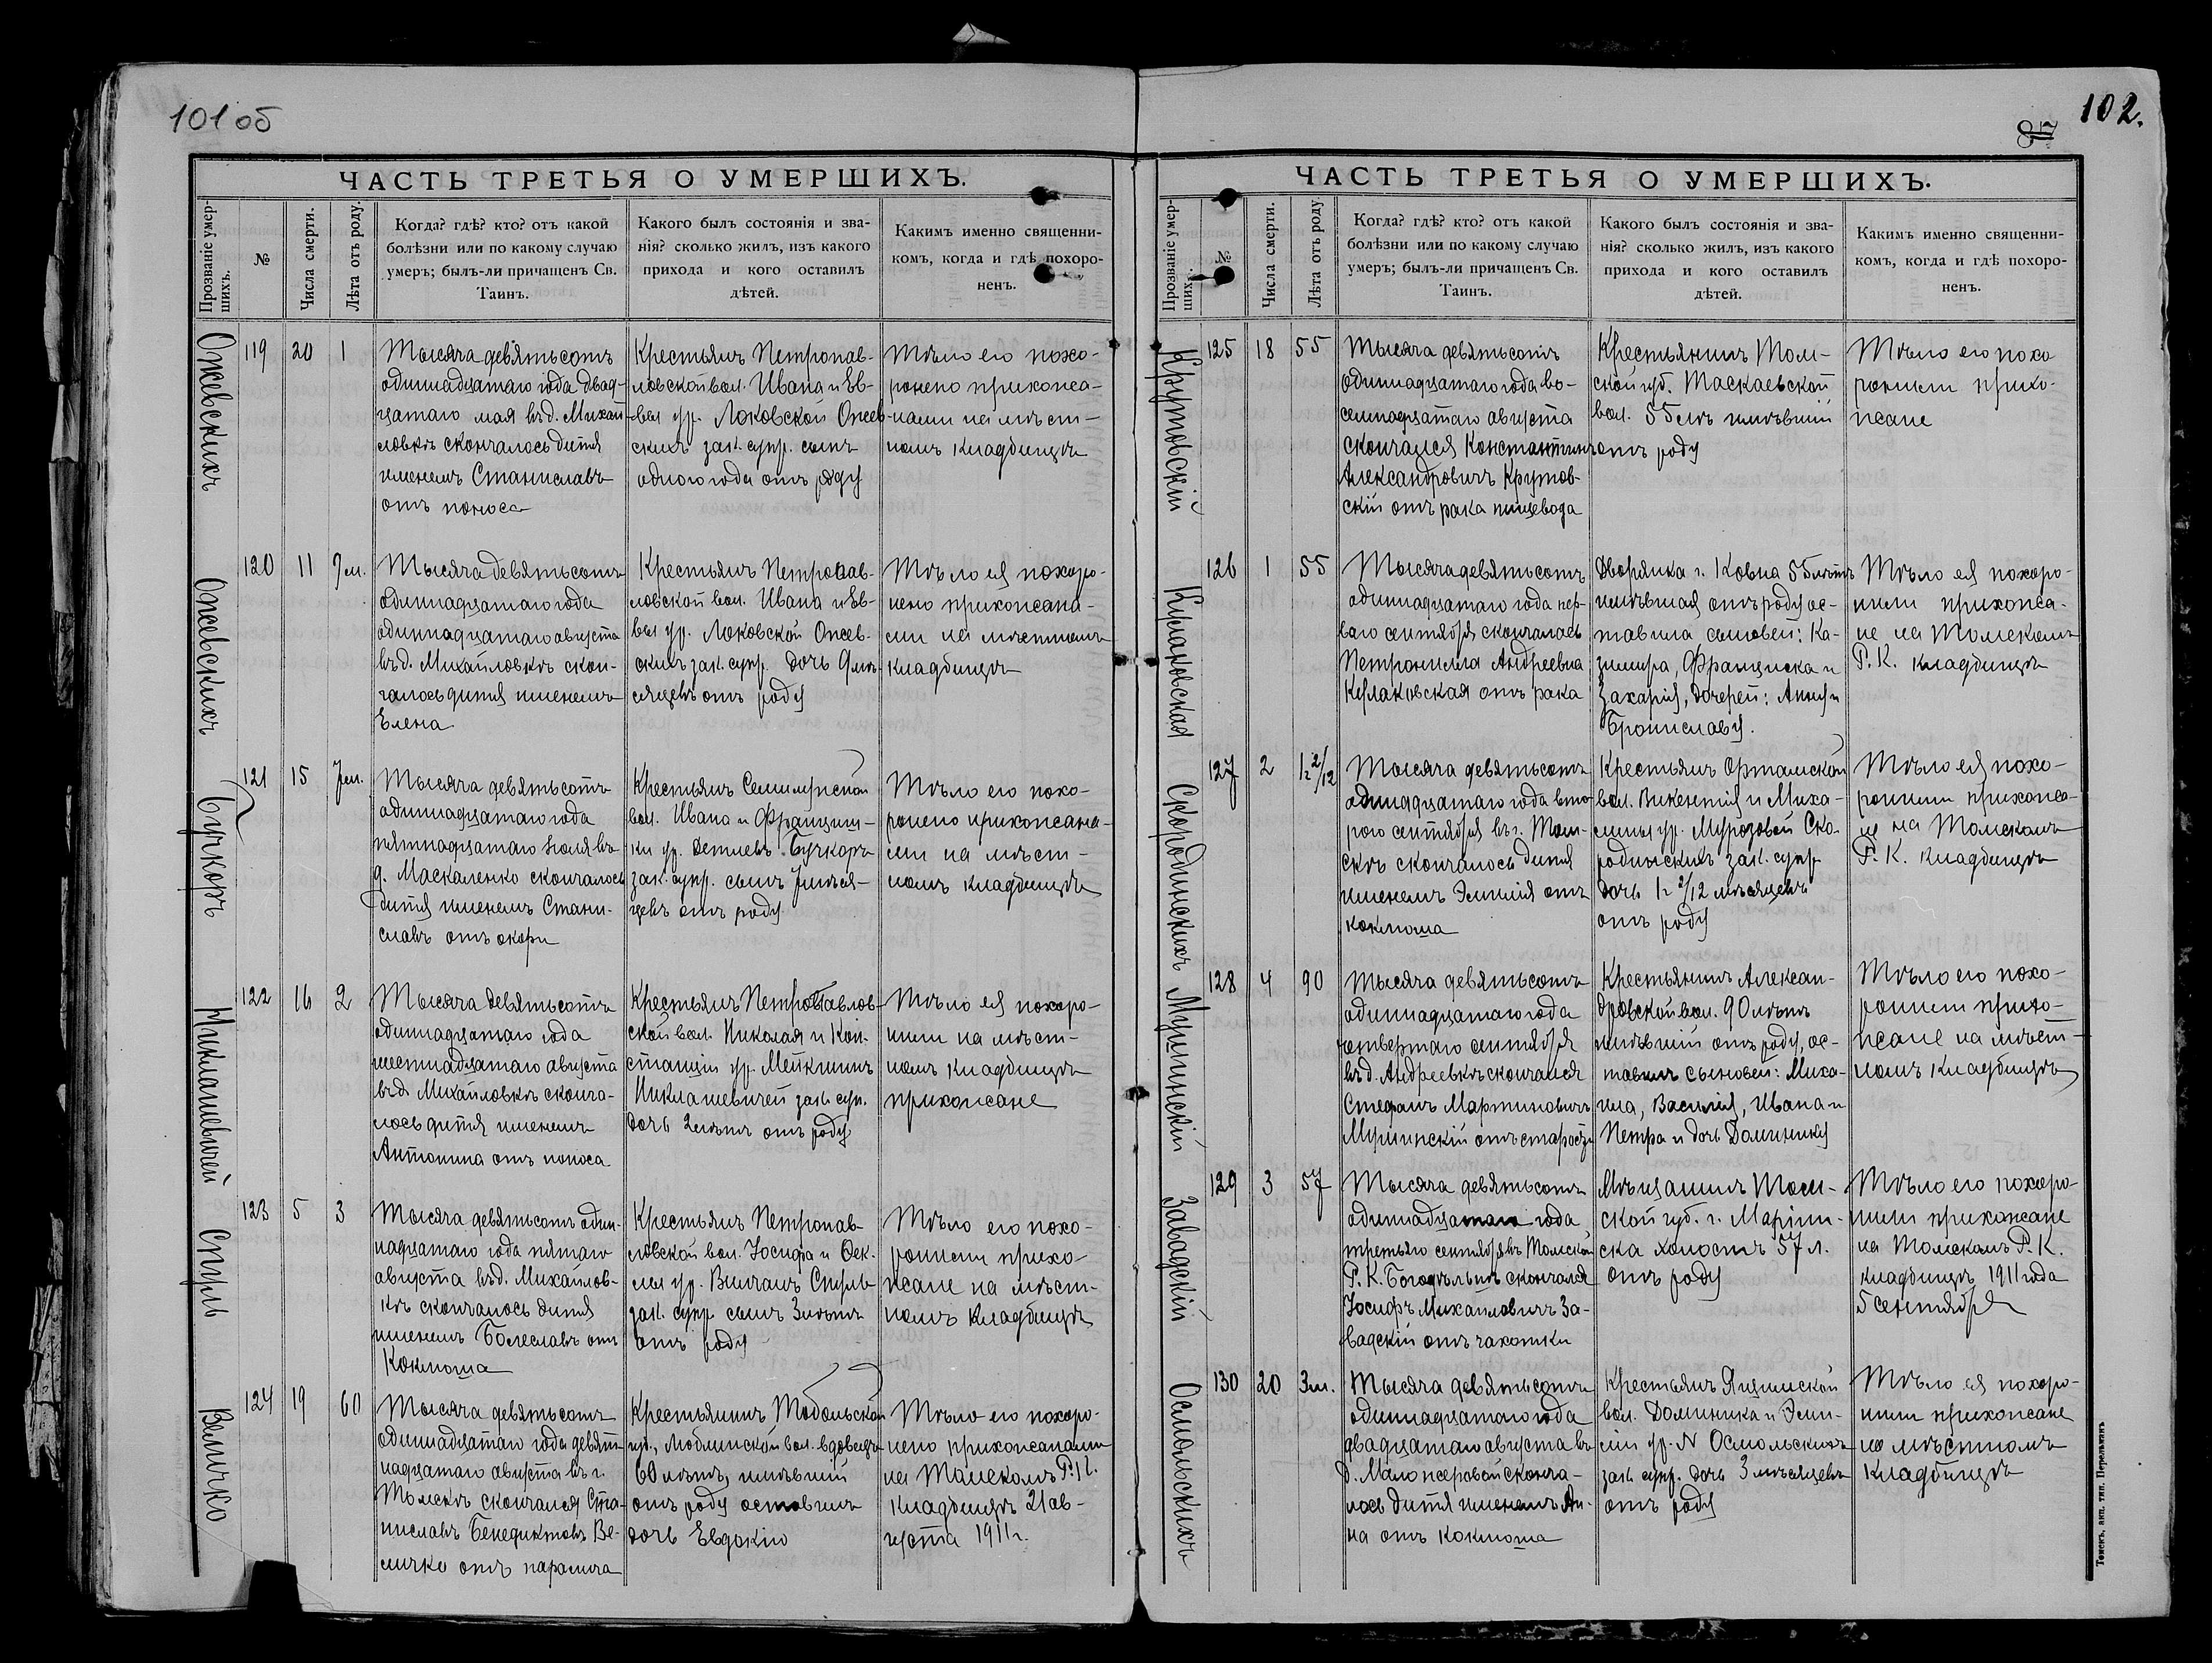 101 об
ЧАСТЬ ТРЕТЬЯ О УМЕРШИХЪ.
Прозваніе умершихъ.
№
Числа смерти.
Лѣта отъ роду.
Когда? гдѣ? кто? отъ какой
болѣзни или по какому случаю
умеръ; былъ-ли причащенъ Св.
Таинъ.
Какого былъ состоянія и зва-
нія? сколько жилъ, изъ какого
прихода и кого оставилъ
дѣтей.
Какимъ именно священни-
комъ, когда и гдѣ похоро-
ненъ.
Ожевскихъ
119
20
1
Тысяча девятьсотъ
одиннадцатаго года двад-
цатаго мая въ д. Михай-
ловкѣ скончалось дитя
именемъ Станиславъ
отъ поноса
Крестьянъ Петропав-
ловской вол. Ивана и Ев-
вы ур. Локовской Ожев-
скихъ зак. супр. сынъ
одного года отъ роду
Тѣло его похо-
ронено прихожа-
нами на мѣст-
номъ кладбищѣ
Ожевскихъ
120
11
9 м.
Тысяча девятьсотъ
одиннадцатаго года
одиннадцатаго августа
въ д. Михайловкѣ скон-
чалось дитя именемъ
Елена
Крестьянъ Петропав-
ловской вол. Ивана и Ев-
вы ур. Локовской Ожев-
скихъ зак. супр. дочь 9 мѣ-
сяцевъ отъ роду
Тѣло ея похоро-
нено прихожана-
ми на мѣстномъ
кладбищѣ
Бучкоръ
121
15
7 м.
Тысяча девятьсотъ
одиннадцатаго года
пятнадцатаго іюля въ
д. Маскаленко скончалось
дитя именемъ Стани-
славъ отъ скори
Крестьянъ
вол. Ивана и Франциш-
ки ур. Бучкоръ
зак. супр. сынъ 7 мѣся-
цевъ отъ роду
Тѣло его похо-
ронено прихожана-
ми на мѣст-
номъ кладбищѣ
Миклашевичей
122
16
2
Тысяча девятьсотъ
одиннадцатаго года
шестнадцатаго августа
въ д. Михайловкѣ сконча-
лось дитя именемъ
Антонина отъ поноса
Крестьянъ Петропавлов-
ской вол. Николая и Кон-
станціи ур. Мейкшинъ
Миклашевичей зак. суп.
дочь 2 лѣтъ отъ роду
Тѣло ея похоро-
нили на мѣст-
номъ кладбищѣ
прихожане
Спуль
123
5
3
Тысяча девятьсотъ один-
надцатаго года пятаго
августа въ д. Михайлов-
кѣ скончалось дитя
именемъ Болеславъ отъ
Коклюша
Крестьянъ Петропав-
ловской вол. Іосифа и Ѳек-
лы ур. Спуль
зак. супр. сынъ 3 лѣтъ
отъ роду
Тѣло его похо-
ронили прихо-
жане на мѣст-
номъ кладбищѣ
Величко
124
19
60
Тысяча девятьсотъ
одиннадцатаго года девят-
надцатаго августа въ г.
Томскѣ скончался Ста-
ниславъ Бенедиктовъ Ве-
личко отъ паралича
Крестьянинъ Тобольской
губ., вол. вдовецъ
60 лѣтъ имѣвшій
отъ роду оставилъ
дочь Евдокію
Тѣло его похоро-
нено прихожанами
на Томскомъ Р. К.
кладбищѣ 21 ав-
густа 1911 г.
102.
ЧАСТЬ ТРЕТЬЯ О УМЕРШИХЪ.
Прозваніе умершихъ.
№
Числа смерти.
Лѣта отъ роду.
Когда? гдѣ? кто? отъ какой
болѣзни или по какому случаю
умеръ; былъ-ли причащенъ Св.
Таинъ.
Какого былъ состоянія и зва-
нія? сколько жилъ, изъ какого
прихода и кого оставилъ
дѣтей.
Какимъ именно священни-
комъ, когда и гдѣ похоро-
ненъ.
Крутовскій
125
18
55
Тысяча девятьсотъ
одиннадцатаго года во-
семнадцатаго августа
скончался Константинъ
Александровичъ Крутов-
скій отъ рака пищевода
Крестьянинъ Том-
ской губ. Таскаевской
вол. 55 лѣтъ имѣвшій
отъ роду
Тѣло его похо
ронили прихо-
жане
Кулаковская
126
1
55
Тысяча девятьсотъ
одиннадцатаго года пер-
ваго сентября скончалась
Петронелла Андреевна
Кулаковская отъ рака
Дворянка г. Ковна 55 лѣтъ
имѣвшая отъ роду ос-
тавила сыновей: Ка-
зимира, Франциска и
Захарія, дочерей: Анну и
Брониславу.
Тѣло ея похоро-
нили прихожа-
не на Томскомъ
Р. К. кладбищѣ
Скородинскихъ
127
2
1 г. 2/12
Тысяча девятьсотъ
одиннадцатаго года вто-
рого сентября въ г. Том-
скѣ скончалось дитя
именемъ Эмилія отъ
коклюша
Крестьянъ Ортамской
вол. Викентія и Миха-
лины ур. Мурозовой Ско-
родинскихъ зак. супр.
дочь 1 г 2/12 мѣсяцевъ
отъ роду
Тѣло ея похо-
ронили прихожа-
не на Томскомъ
Р. К. кладбищѣ
Мушинскій
128
4
90
Тысяча девятьсотъ
одиннадцатаго года
четвертаго сентября
въ д. Андреевкѣ скончался
Стефанъ Мартиновичъ
Мушинскій отъ старости
Крестьянинъ Алексан-
дровской вол. 90 лѣтъ
имѣвшій отъ роду, ос-
тавилъ сыновей: Миха-
ила, Василія, Ивана и
Петра и дочь Доминику
Тѣло его похо-
ронили прихо-
жане на мѣст-
номъ кладбищѣ
Завадскій
129
3
57
Тысяча девятьсотъ
одиннадцатаго года
третьяго сентября въ Томской
Р. К. Богадѣльнѣ скончался
Іосифъ Михайловичъ За-
вадскій отъ чахотки
Мѣщанинъ Том-
ской губ. г. Маріин-
ска холостъ 57 л.
отъ роду
Тѣло его похоро-
нили прихожане
на Томскомъ Р. К.
кладбищѣ 1911 года
5 сентября
Осмольскихъ
130
20
3 м.
Тысяча девятьсотъ
одиннадцатаго года
двадцатаго августа въ
д. Мало сконча-
лось дитя именемъ Ан-
на отъ коклюша
Крестьянъ
вол. Доминика и Эми-
ліи ур. N Осмольскихъ
зак. супр. дочь 3 мѣсяцевъ
отъ роду
Тѣло ея похоро-
нили прихожане
на мѣстномъ
кладбищѣ
Томскъ, акц. тип. Перельманъ